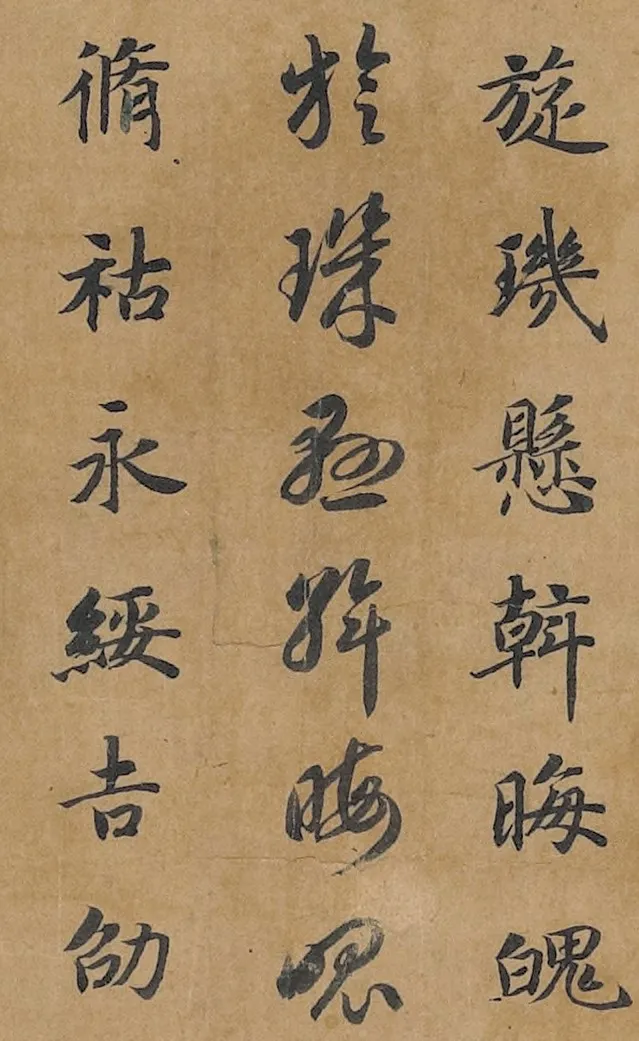 旋璣懸斡晦魄
旋璣懸斡晦魄
脩祜永綏吉劭